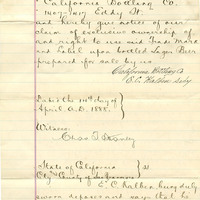 California Bottling Co.
1407-1417 Eddy St.
and hereby give notice of our
claim of exclusive ownership of
and right to use said Trade Mark
and Label upon bottled Lager Beer
prepared for sale by us
California Bottling Co
E.C. Secty
Dated the day of
April A.D. 1885.
Witness
Chas.
State of California
City & County of San Francisco } ss
E. C. being duly
sworn deposes and says that he